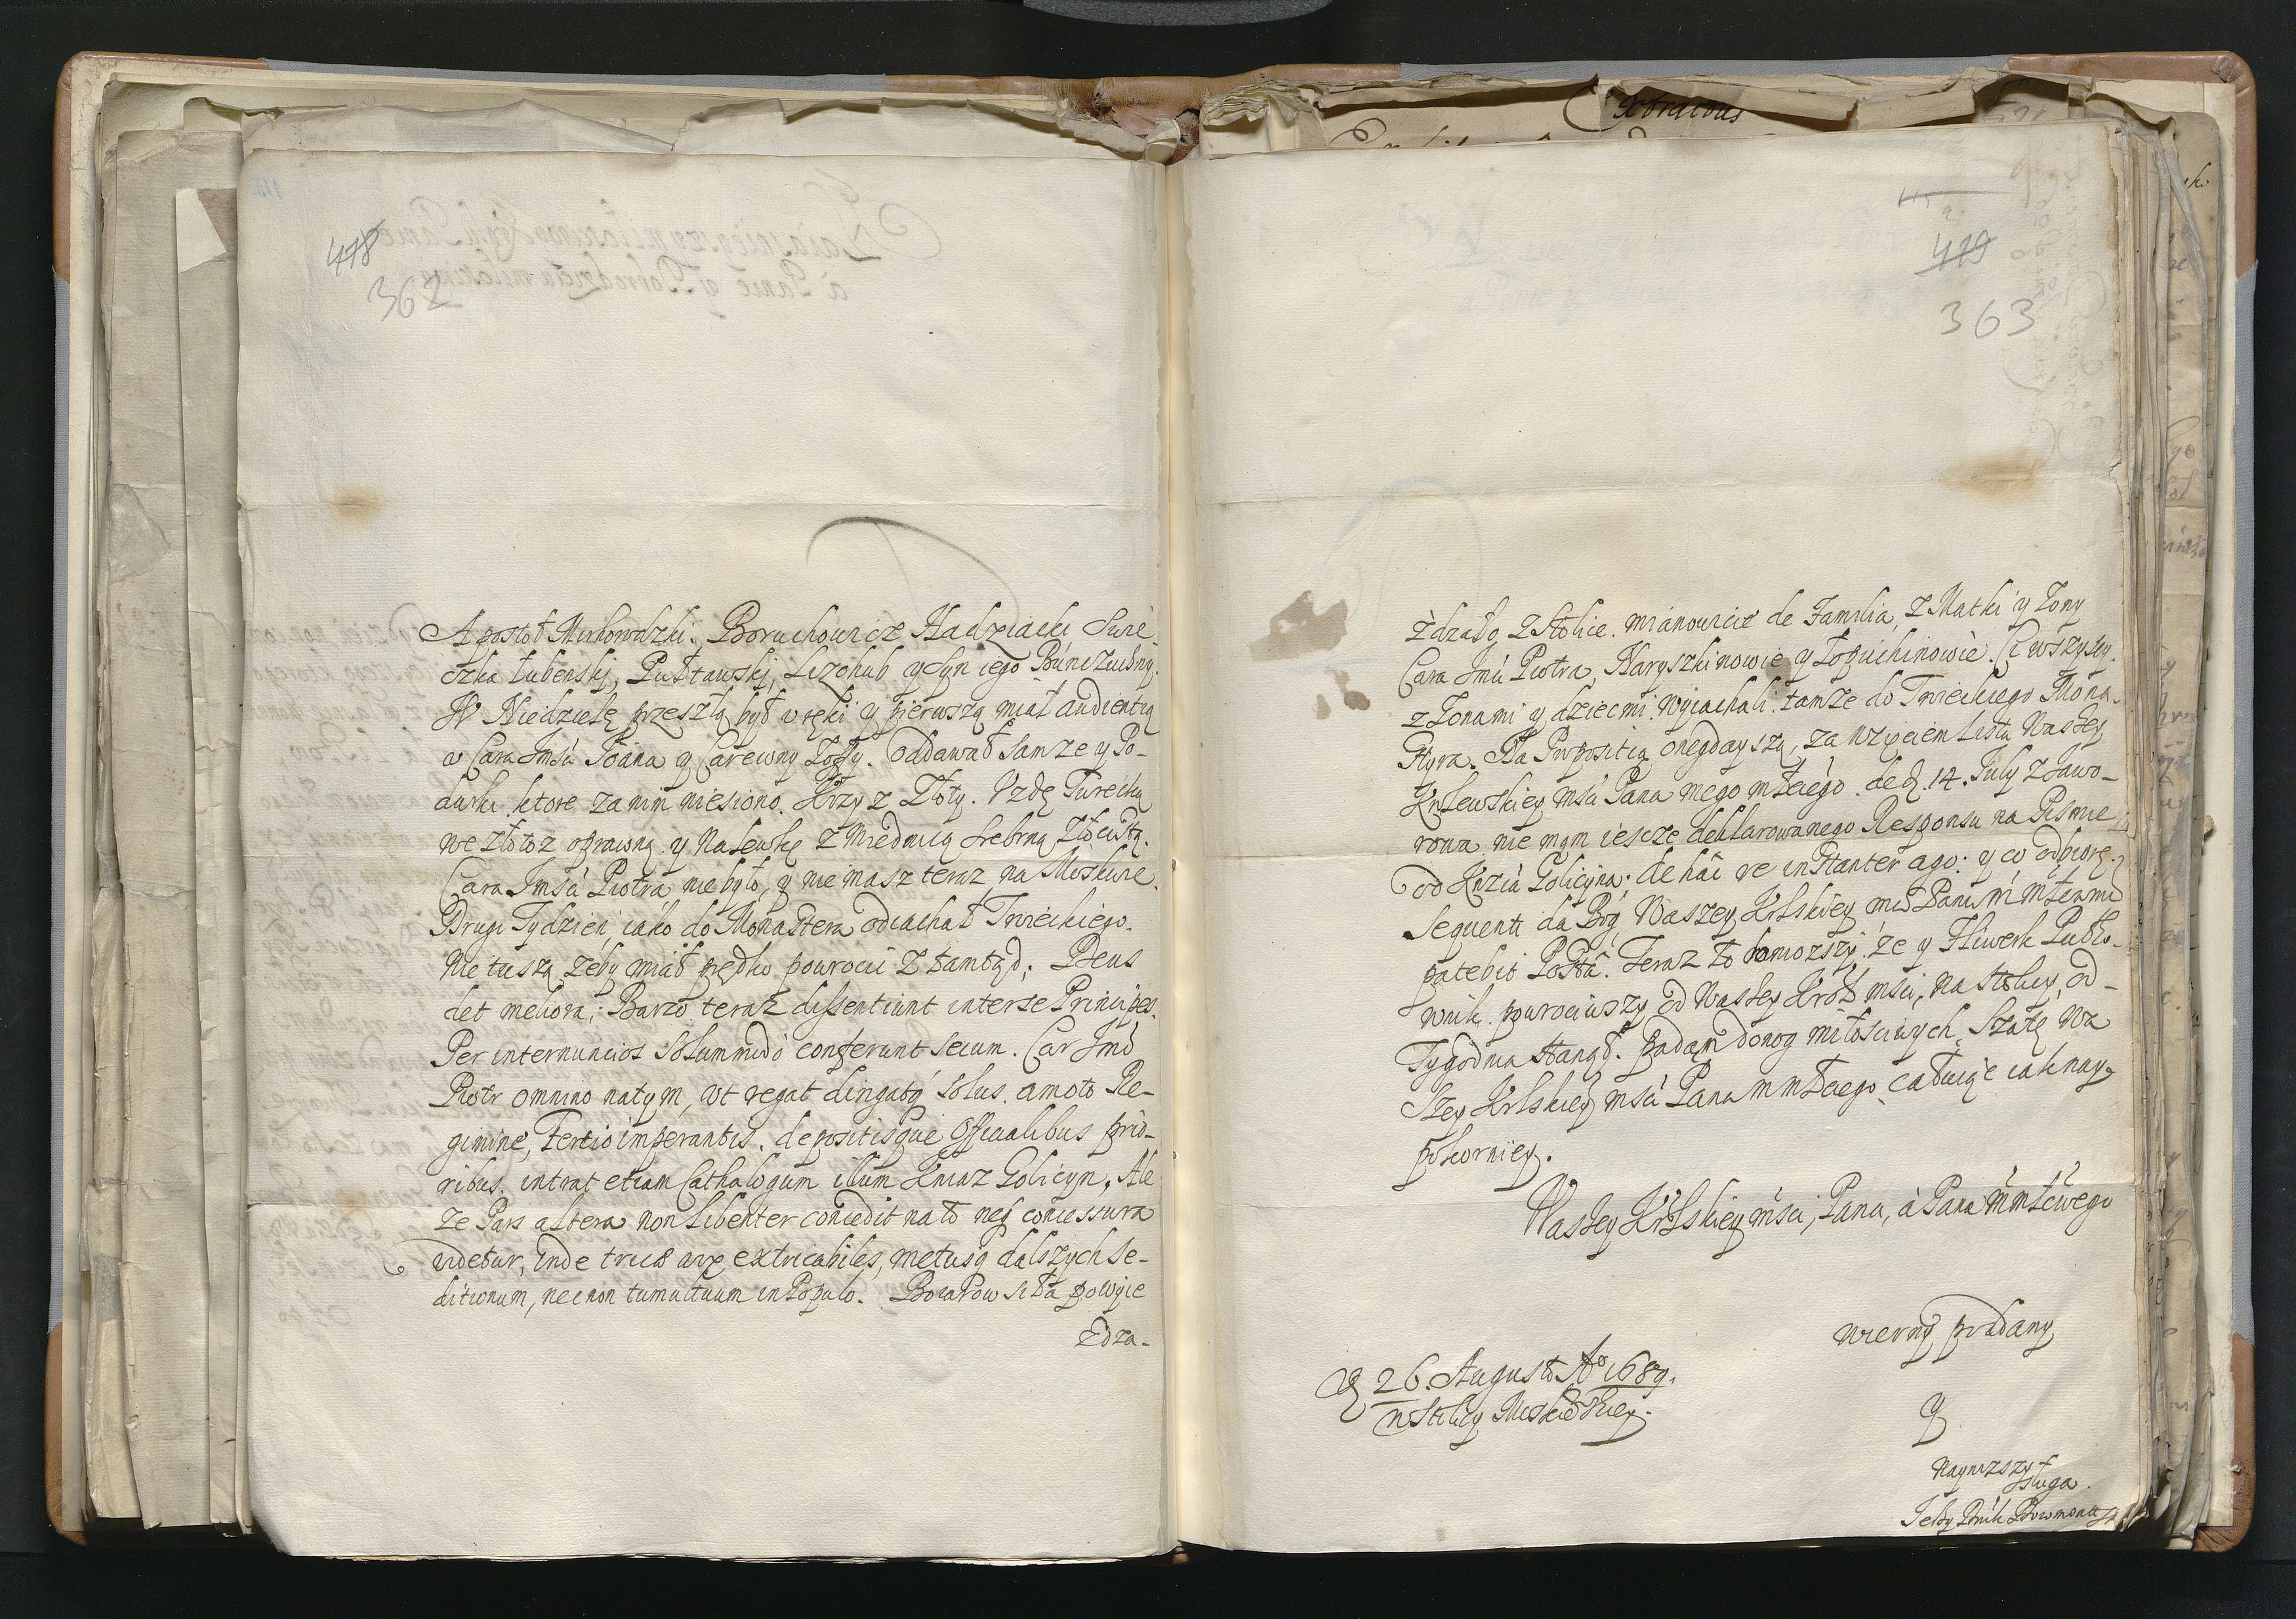 478
362
Apostoł Mirhorodzki, Boruchowicz Hadziacki Swie
czka Łubenskj, Pułtawskj, Lizohub y Syn iego Búnczuczny.
W Niedzielę przeszłą był v ręki y pierwszą miał audientią
v Cara Jmśći Joana y Carewny Zoffy. Oddawał Sam ze y Po-
darki ktore za nim niesiono. Krzyz Złoty. Vzdę Turecką
we złoto oprawną y Nalewkę z Miednicą srebrną złocistą.
Cara Jmści Piotra nie było, y nie masz teraz na Moskwie.
Drugi Tydzień iako do Monastera odiachał Troieckiego.
Nie tuszą zeby miał prędko powrocic z tamtąd; Deus
det meliora; Barzo teraz dissentiunt inter se Principes.
Per internuncios solummodo conferunt secum. Car Jmć
Piotr omnino na tym, vt regat dirigatq́ solus. amoto Re-
gimine, Tertio imperantis. depositisque Officialibus prio-
ribus. intrat etiam Cathalogum illum Kniaz Golicyn. Ale
ze Pars altera non libenter concedit na to neq́ concessura
videtur, inde tricæ inextricabiles, metusq́ dalszych se-
ditionum, necnon tumultuum in Populo. Boiarow siła powyie
zdza-
419
363
żdzało z Stolice. mianowicie de Familia, z Matki y Zony
Cara Jmći Piotra, Naryszkinowie y Łopuchinowie. Ci wszyscy.
z Zonami y dziecmi. wyiachali. tamze do Troieckiego Mona-
styra. Na Propositią onegdayszą, za wzięciem Listu Waszey
Krolewskiey mści Pana mego młćiego. de d. 14. July z Jawo-
rowa nie mąm ieszcze deklarowanego Responsu na Pismie
od Knziá Golicyna; de hác re instanter ago: y co odbiorę.
sequenti da Bog Waszey Krlskiey mći Panu m młćemu
patebit Posta. Teraz to donoszę, ze y Hiwerk Pułko-
wnik powrociwszy od Waszey Król mści, na stolicy, od
Tygodnia stanął. Padąm do nog miłosciwych, szatę Wa
szey Krlskiey mści Pana m młćiego całuię iak nay-
pokorniey.
Waszey Krlskiey mści, Pana, á Pana m młćiwego
wierny poddany
y
Naynizszy
sługa.
D 26. Augusti Aº 1689.
w Stolicy Moskiewskiey.